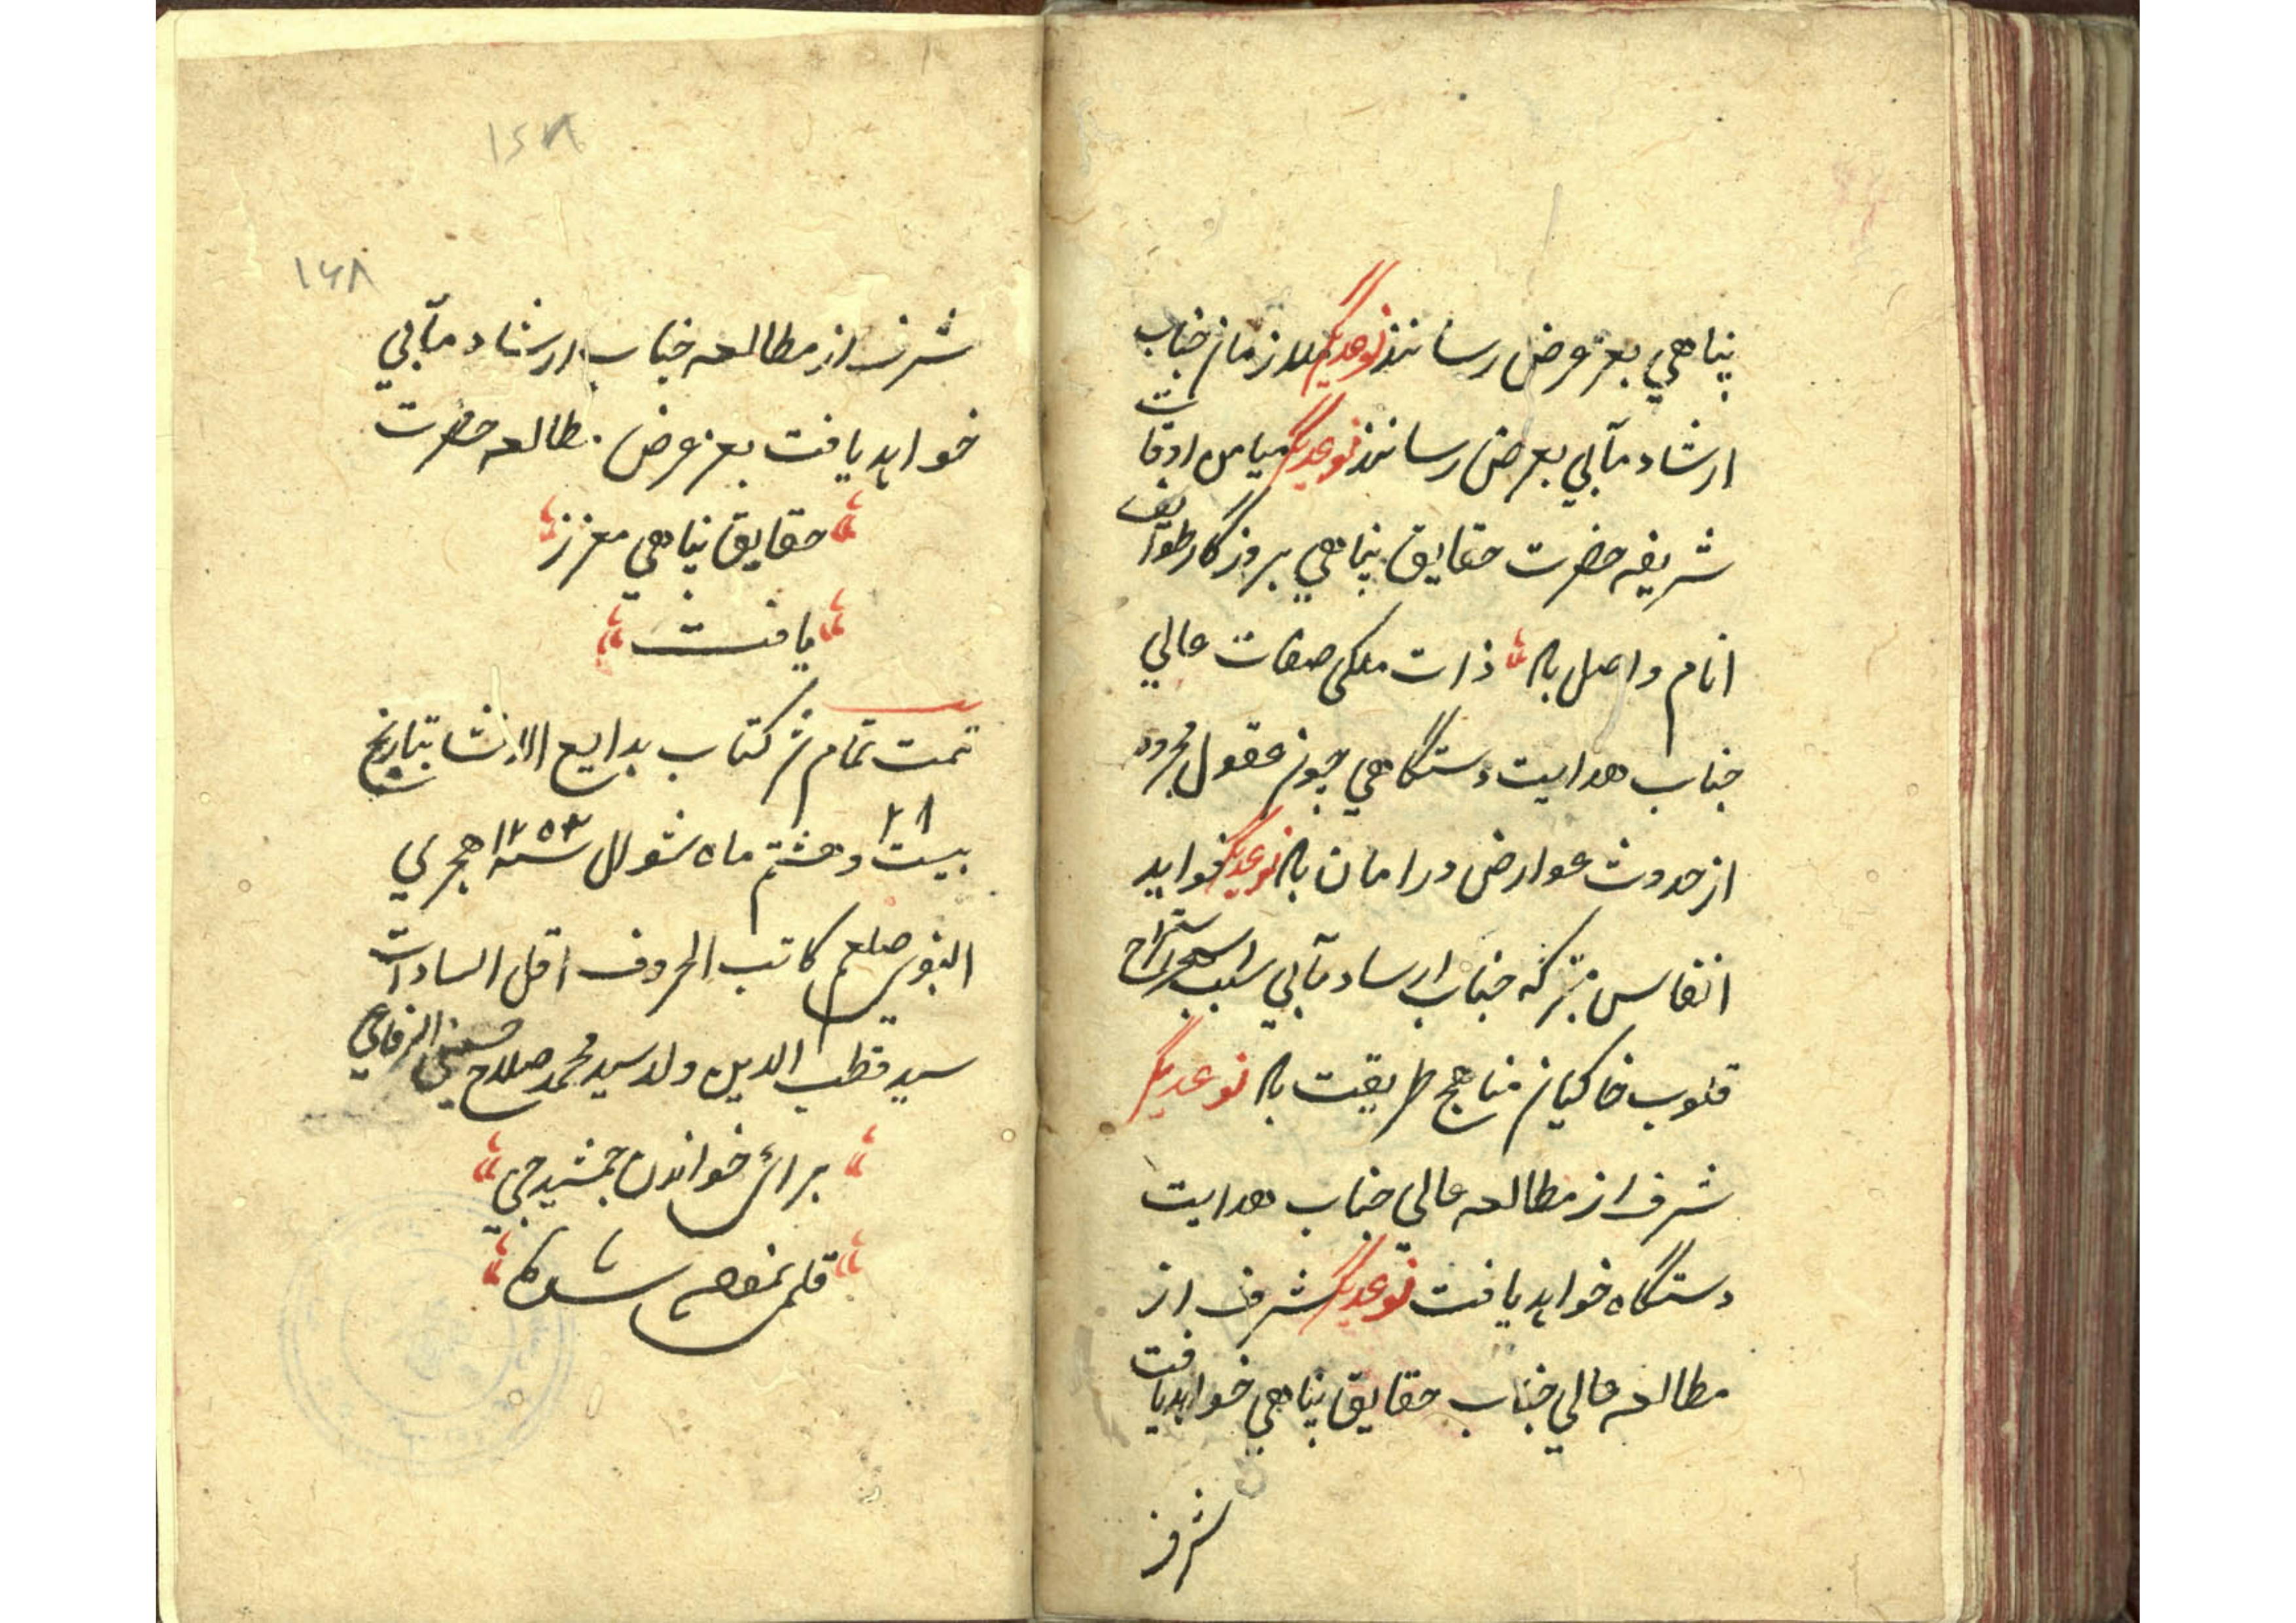 پناهي بعز عرض رسانند نوعدیگر ملازمان جناب
ارشاد مآبي بعرض رسانند نوعدیگر میامن اوقات
شریفه حضرت حقایق پناهي بروزگار طوایف
انام واصل باد ذات ملکی صفات عالي
جناب هدایت دستگاهي چون عقول مجرده
از حدوث عوارض در امان باد نوعدیگر فواید
انفاس متبرکه جناب ارشاد مآبي سبب استرواح
قلوب خاکیان مناهج طریقت باد نوعدیگر
شرف از مطالعه عالي جناب هدایت
دستگاه خواهد یافت نوعدیگر شرف از
مطالعه عالي جناب حقایق پناهي خواهد یافت
شرف از
۱۶۸
شرف از مطالعه جناب ارشاد مآبي
خواهد یافت بعز عرض مطالعه حضرت
حقایق پناهي معزز
یافت
تمت تمام شد کتاب بدایع الانشا بتاریخ
۲۸
بیست و هشتم ماه شوال سنه ۱۲۵۳ هجري
النبوي صلعم کاتب الحروف اقل السادات
سید قطب الدین ولد سید محمد صلاح حسیني الرفاعي
برائ خواندن جمشیدجي
قلمي نموده شد